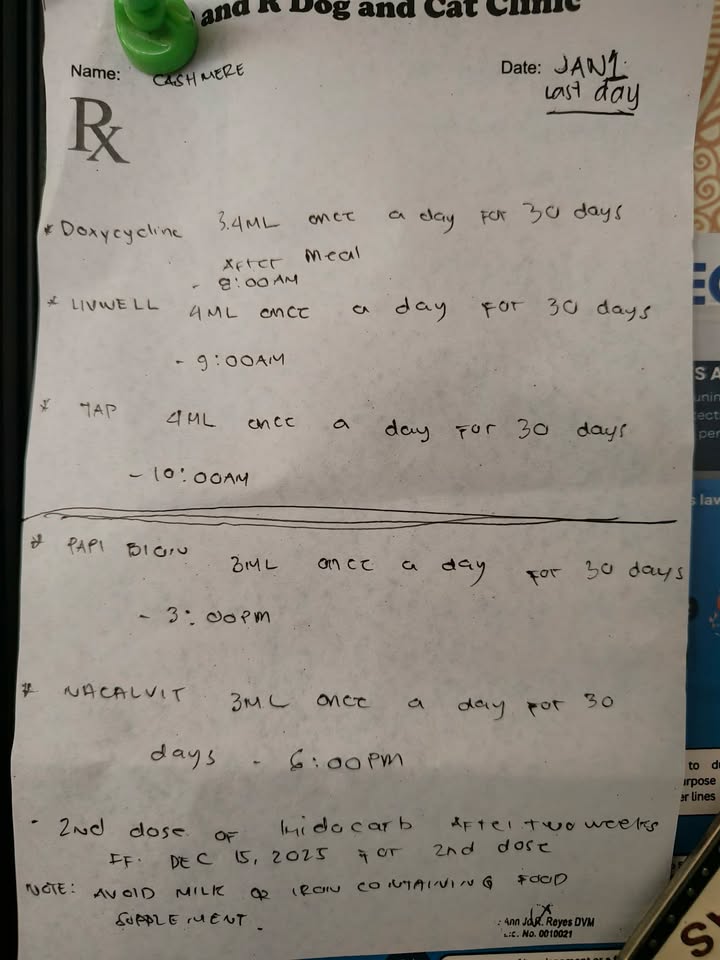 and R Dog and Cat Clinic
Name: CASHMERE
Date: JAN 1
Last day
Rx
* Doxycycline 3.4ML once a day FOR 30 days
AFTER Meal
- 8:00AM
* LIVWELL 4ML once a day FOR 30 days
- 9:00AM
* TAP 4ML once a day FOR 30 days
- 10:00AM
* PAPI BION 3ML once a day FOR 30 days
- 3:00PM
* NACALVIT 3ML once a day FOR 30
days - 6:00PM
- 2nd dose OF Imidocarb AFTER two weeks
FF: DEC 15, 2025 FOR 2nd dose
NOTE: AVOID MILK OR IRON CONTAINING FOOD
SUPPLEMENT.
Reyes DVM
Lic. No. 0010021
to d
urpose
er lines